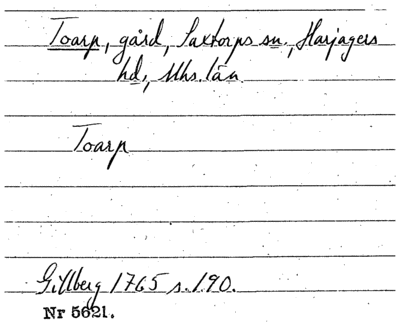 Toarp, gård, Saxtorps sn., Harjagers
hd., Mhs. län
Toarp
Gillberg 1765 s. 190.
Nr 5621.